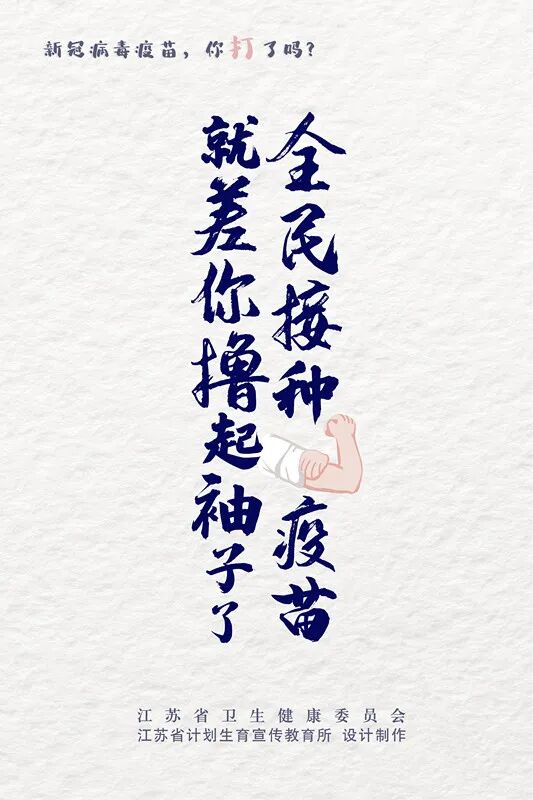 新冠病毒疫苗，你打了吗？
全民接种疫苗
就差你撸起袖子了
江苏省卫生健康委员会
江苏省计划生育宣传教育所 设计制作